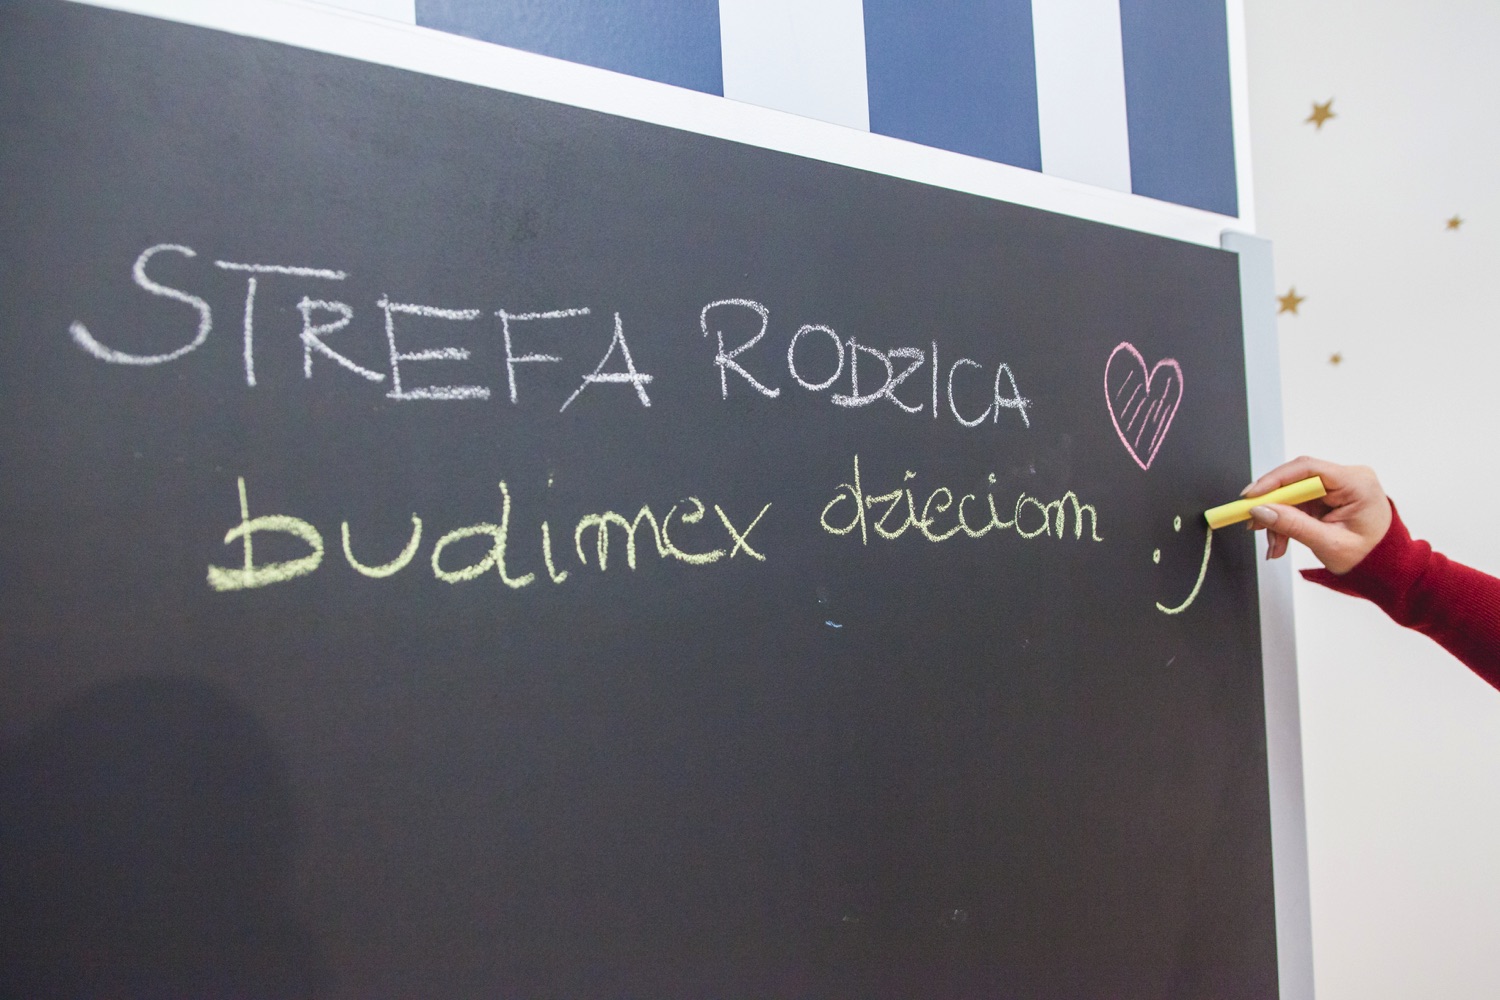 STREFA RODZICA
budimex dzieciom :)